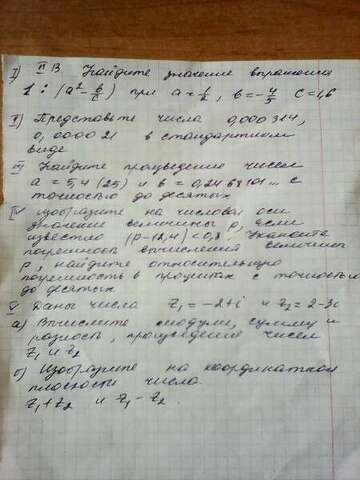 I) II В Найдите значение выражения
1 : (a² - b/c) при a = 1/2, b = -4/5 c = 1,6
II) Представьте числа 0,000314,
0,0000021 в стандартном
виде
III Найдите произведение чисел
a = 5,4(25) и b = 0,2468101... с
точностью до десятых
IV изобразите на числовой оси
значение величины p, если
известно |p-12,4| < 0,8
погрешность вычисления величины
p, найдите относительную
погрешность в процентах с точностью
до десятых
V Даны числа z₁ = -2+i и z₂ = 2-3i
а) Вычислите модули, сумму и
разность, произведение чисел
z₁ и z₂
б) Изобразите на координатной
плоскости числа
z₁+z₂ и z₁-z₂.